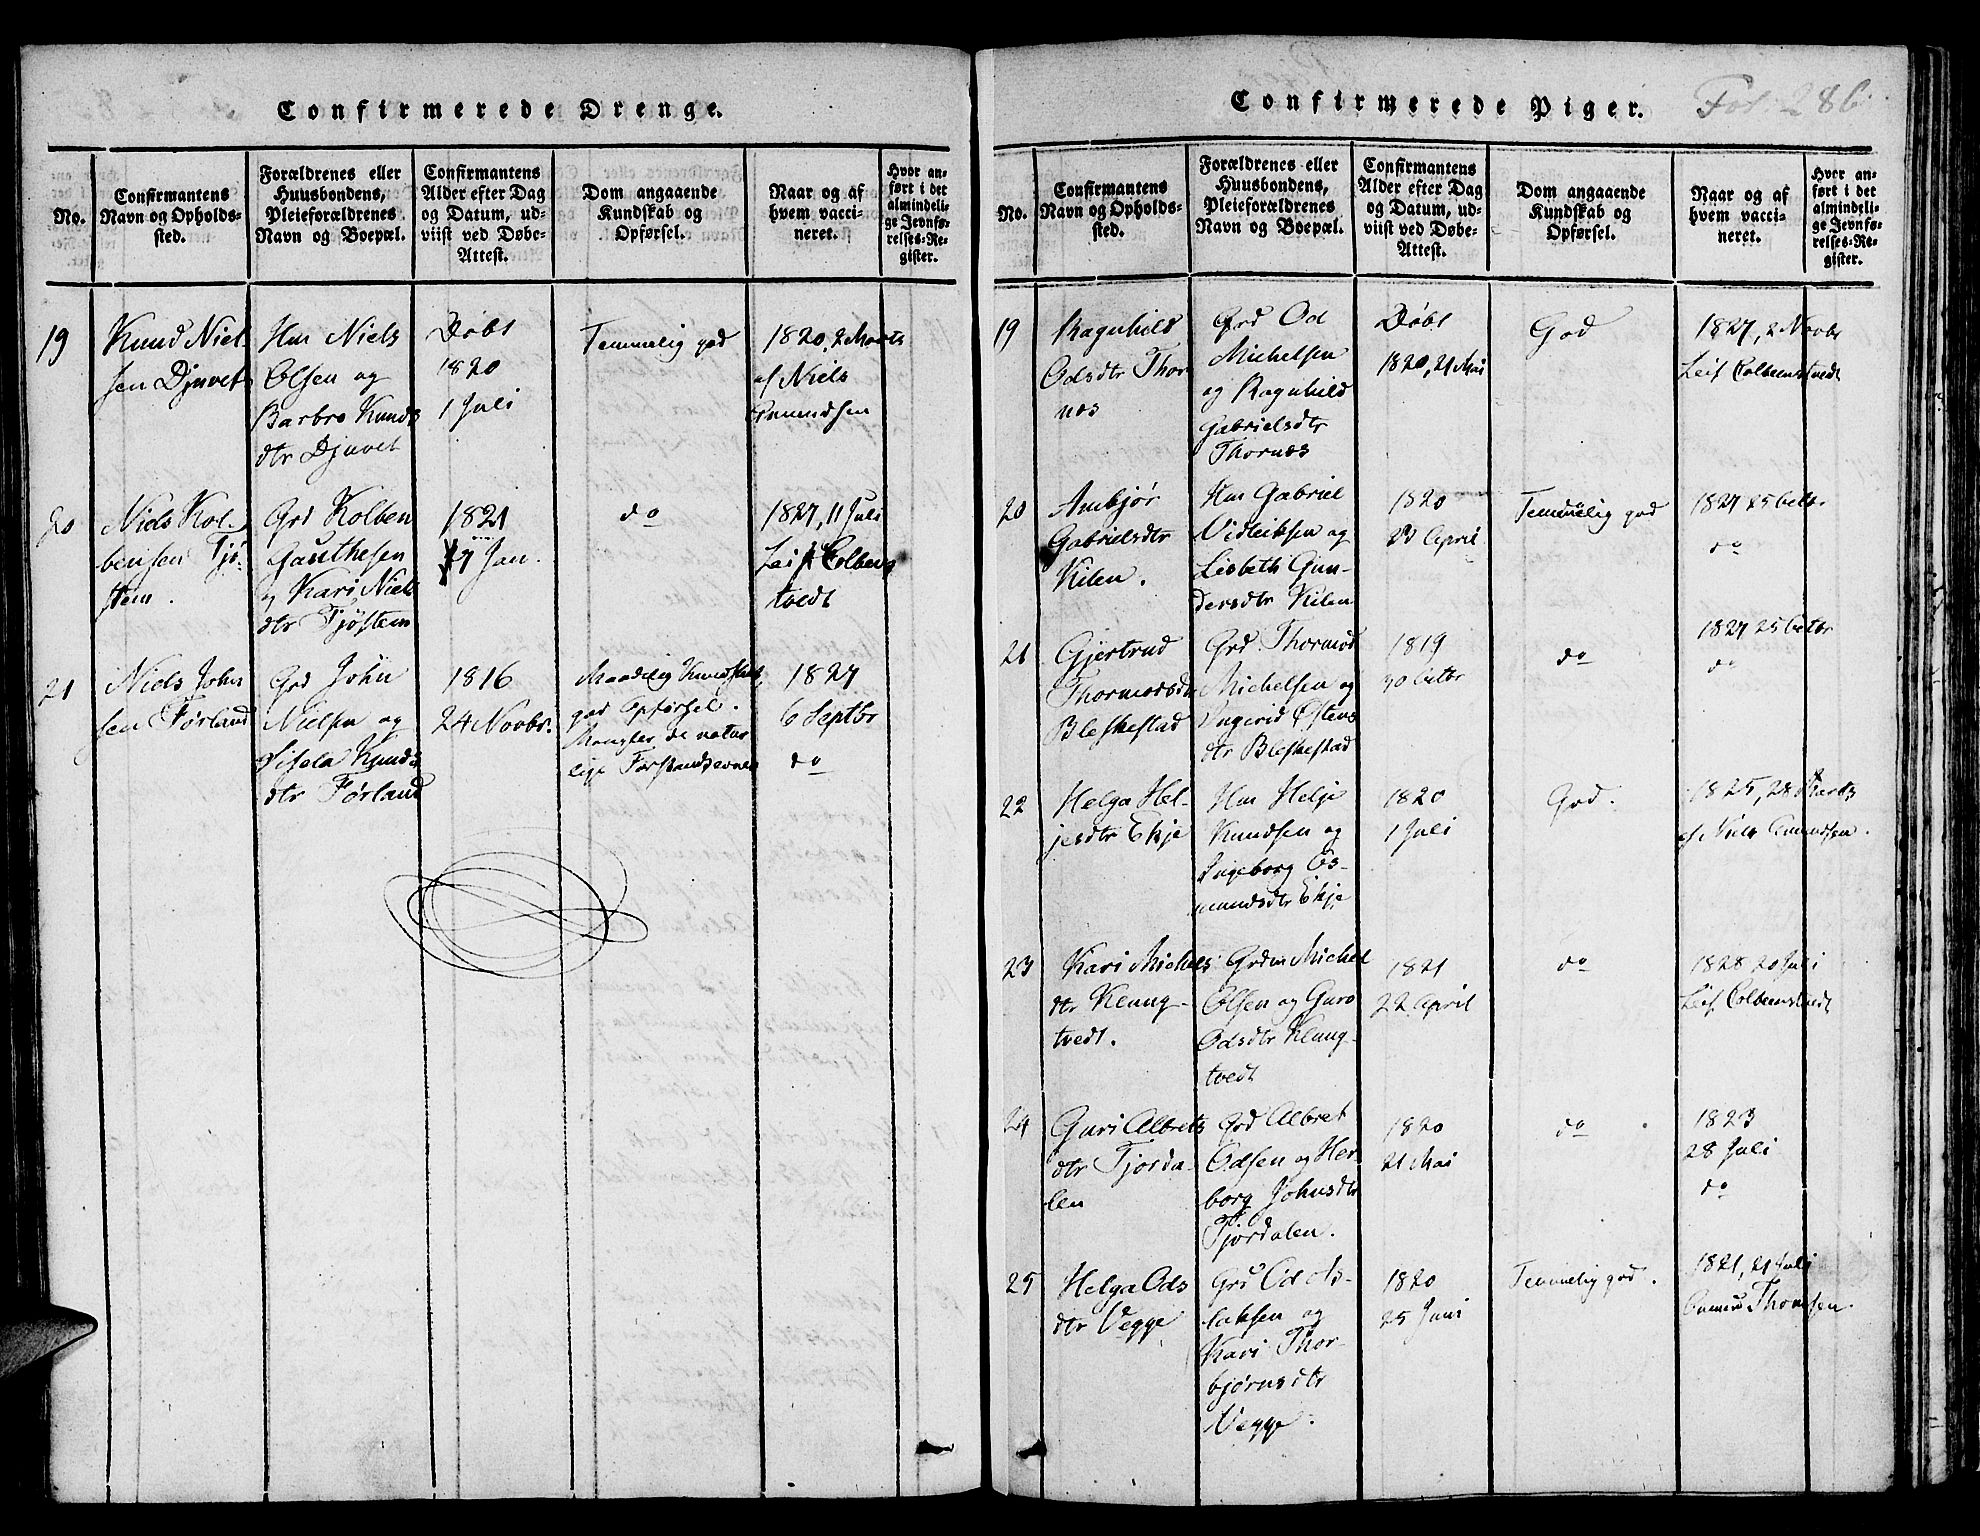 Confirmerede Drenge.
No.
Confirmantens
Navn og Opholds-
sted.
Forældrenes eller
Huusbondens,
Pleieforældrenes
Navn og Boepæl.
Confirmantens
Alder efter Dag
og Datum, ud-
viist ved Døbe-
Attest.
Dom angaaende
Kundskab og
Opførsel.
Naar og af
hvem vacci-
neret.
Hvor an-
ført i det
almindeli-
ge Jevnfø-
relses-Re-
gister.
19
Knud Niel
sen Djuvet
Hm Niels
Olsen og
Barbro Knuds
dtr Djuvet
Døbt
1820
1 Juli
Temmelig god
1820, 2 Marts
af Niels
20
Niels Kol-
bensen Tjø-
stem.
Grd Kolben
Gauthesen
og Kari Niels
dtr Tjøstem
1821
7 Jan.
do
1827, 11 Juli
Leif Colbens
tvedt
21
Niels John
sen Førland
Grd John
Nielsen og
Sisela Knuds
dtr Førland
1816
24 Novbr.
Maadelig Kundskab,
god Opførsel.
Mangler de natur
lige Forstandsevner
1827
6 Septbr
do
Confirmerede Piger.
Fol. 286.
No.
Confirmantens
Navn og Opholds-
sted.
Forældrenes eller
Huusbondens,
Pleieforældrenes
Navn og Boepæl.
Confirmantens
Alder efter Dag
og Datum, ud-
viist ved Døbe-
Attest.
Dom angaaende
Kundskab og
Opførsel.
Naar og af
hvem vacci-
neret.
Hvor an-
ført i det
almindeli-
ge Jevnfø-
relses-Re-
gister.
19
Ragnhild
Odsdtr Thor
næs
Grd Od
Michelsen
og Ragnhild
Gabrielsdtr
Thornæs
Døbt
1820, 21 Mai
God
1827, 2 Novbr
Leif Colbenstvedt
20
Anbjør
Gabrielsdtr
Kilen.
Hm Gabriel
Vidleiksen og
Lisbeth Gun-
dersdtr Kilen
1820
23 April
Temmelig god
1827 25 Octbr
do
21
Gjertrud
Thormodsdtr
Bleskestad
Grd Thormod
Michelsen og
Ingerid Østens
dtr Bleskestad
1819
30 Octbr
do
1827 25 Octbr
do
22
Helga Hel-
jesdtr Ekje
Hm Helje
Knudsen og
Ingeborg Os-
mundsdtr Ekje
1820
1 Juli
God.
1825, 28 Marts
af Niels
23
Kari Michels
dtr Klung-
tvedt.
Grdm Michel
Olsen og Guro
Odsdtr Klung-
tvedt
1821
22 April
do
1828 20 Juli
Leif Colbenstvedt
24
Guri Albrets
dtr Fjorda-
len
Grd Albret
Odsen og Her
borg Johnsdtr
Fjordalen.
1820
21 Mai
do
1823
28 Juli
do
25
Helga Ods
dtr Vegge
Grd Od As-
laksen og
Kari Thor-
bjørnsdtr
Vegge.
1820
25 Juni
Temmelig god.
1821, 21 Juli
Thomsen.